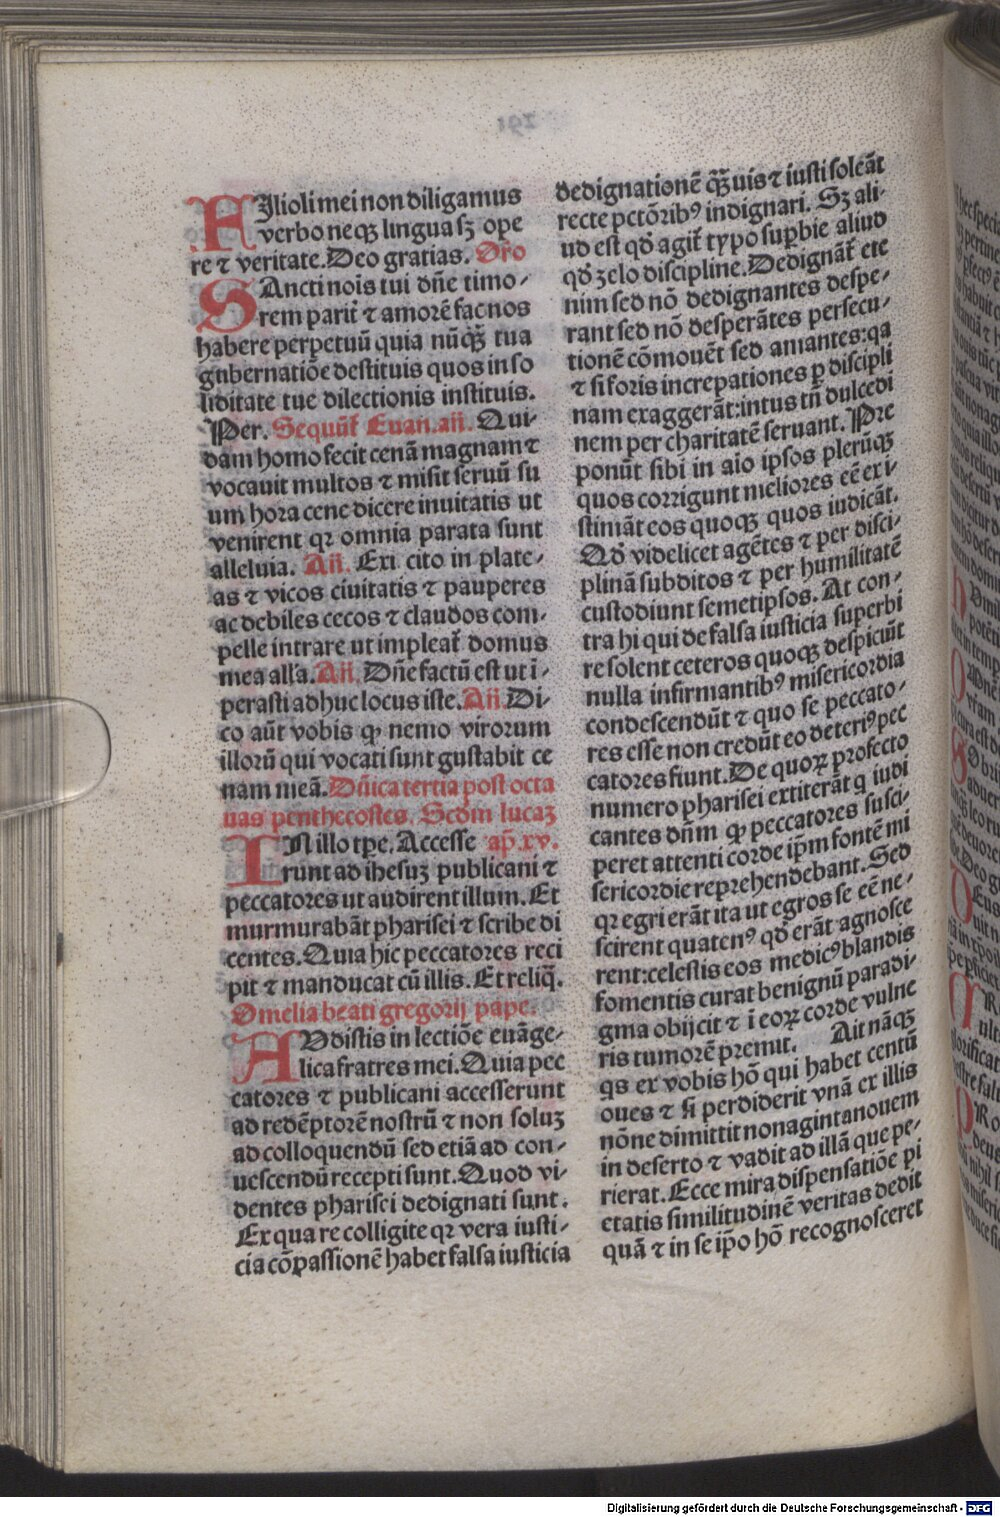 Filioli mei non diligamus
verbo neqꝫ lingua sꝫ ope
re ⁊ veritate. Deo gratias. Oro
SAncti nois tui dñe timo-
rem parit̃ ⁊ amorē fac nos
habere perpetuū quia nūqꝫ̃ tua
gubernatiōe destituis quos in so
liditate tue dilectionis instituis.
Per. Sequūt̃ Euan. añ. Qui-
dam homo fecit cenā magnam ⁊
vocauit multos ⁊ misit seruū su
um hora cene dicere inuitatis ut
venirent qꝛ omnia parata sunt
alleluia. Añ. Exi cito in plate-
as ⁊ vicos ciuitatis ⁊ pauperes
ac debiles cecos ⁊ claudos com-
pelle intrare ut impleat̃ domus
mea alla. Añ. Dñe factū est ut ī-
perasti adhuc locus iste. Añ. Di-
co aūt vobis ꝙ nemo virorum
illorū qui vocati sunt gustabit ce
nam meā. Dñica tertia post octa
uas penthecostes. Scdm lucaꝫ
IN illo tpe. Accesse ap̄. xv.
runt ad ihesuꝫ publicani ⁊
peccatores ut audirent illum. Et
murmurabāt pharisei ⁊ scribe di
centes. Quia hic peccatores reci
pit ⁊ manducat cū illis. Et reliq̄.
Omelia beati gregorij pape.
AUdistis in lectiōe euāge-
lica fratres mei. Quia pec
catores ⁊ publicani accesserunt
ad redēptorē nostrū ⁊ non soluꝫ
ad colloquendū sed etiā ad con-
uescendū recepti sunt. Quod vi-
dentes pharisei dedignati sunt.
Ex qua re colligite qꝛ vera iusti-
cia cōpassionē habet falsa iusticia
dedignationē qꝫ̃uis ⁊ iusti soleāt
recte pctōribꝰ indignari. Sꝫ ali-
ud est qd̄ agit̃ typo supbie aliud
qd̄ zelo discipline. Dedignāt̃ ete
nim sed nō dedignantes despe-
rant sed nō desperātes persecu-
tionē cōmouēt sed amantes: qa
⁊ si foris increpationes ꝑ discipli
nam exaggerāt: intus tñ dulcedi
nem per charitatē seruant. Pre
ponūt sibi in aio ipsos plerūqꝫ
quos corrigunt meliores eē exi-
stimāt eos quoqꝫ quos iudicāt.
Qd̄ videlicet agētes ⁊ per disci-
plinā subditos ⁊ per humilitatē
custodiunt semetipsos. At con-
tra hi qui de falsa iusticia superbi
re solent ceteros quoqꝫ despiciūt
nulla infirmantibꝰ misericordia
condescendūt ⁊ quo se peccato-
res esse non credūt eo deteriꝰ pec
catores fiunt. De quoꝝ profecto
numero pharisei extiterāt q iudi
cantes dñm ꝙ peccatores susci-
peret attenti corde ip̄m fontē mi
sericordie reprehendebant. Sed
qꝛ egri erāt ita ut egros se eē ne-
scirent quatenꝰ qd̄ erāt agnosce
rent: celestis eos medicꝰ blandis
fomentis curat benignū paradi-
gma obijcit ⁊ ī eoꝝ corde vulne
ris tumorē premit. Ait nāqꝫ
qs ex vobis hō qui habet centū
oues ⁊ si perdiderit vnā ex illis
nōne dimittit nonagintanouem
in deserto ⁊ vadit ad illā que pe-
rierat. Ecce mira dispensatiōe pi
etatis similitudinē veritas dedit
quā ⁊ in se ip̄o hō recognosceret
Digitalisierung gefördert durch die Deutsche Forschungsgemeinschaft - DFG